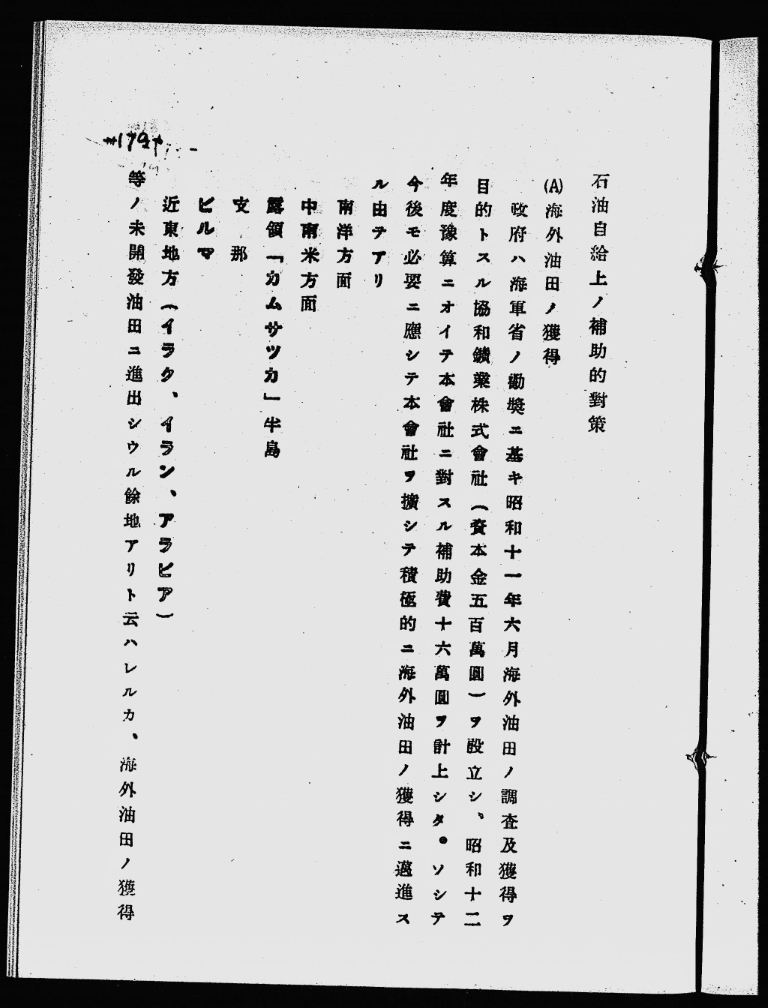 石油自給上ノ補助的對策
(A)海外油田ノ獲得
政府ハ海軍省ノ勸奬ニ基キ昭和十一年六月海外油田ノ調査及獲得ヲ
目的トスル協和鑛業株式會社(資本金五百萬圓)ヲ設立シ、昭和十二
年度豫算ニオイテ本會社ニ對スル補助費十六萬圓ヲ計上シタ。ソシテ
今後モ必要ニ應シテ本會社ヲ擴シテ積極的ニ海外油田ノ獲得ニ邁進ス
ル由テアリ
南洋方面
中南米方面
露領「カムサツカ」半島
支那
ビルマ
近東地方(イラク、イラン、アラビア)
等ノ未開發油田ニ進出シウル餘地アリト云ハレルカ、海外油田ノ獲得